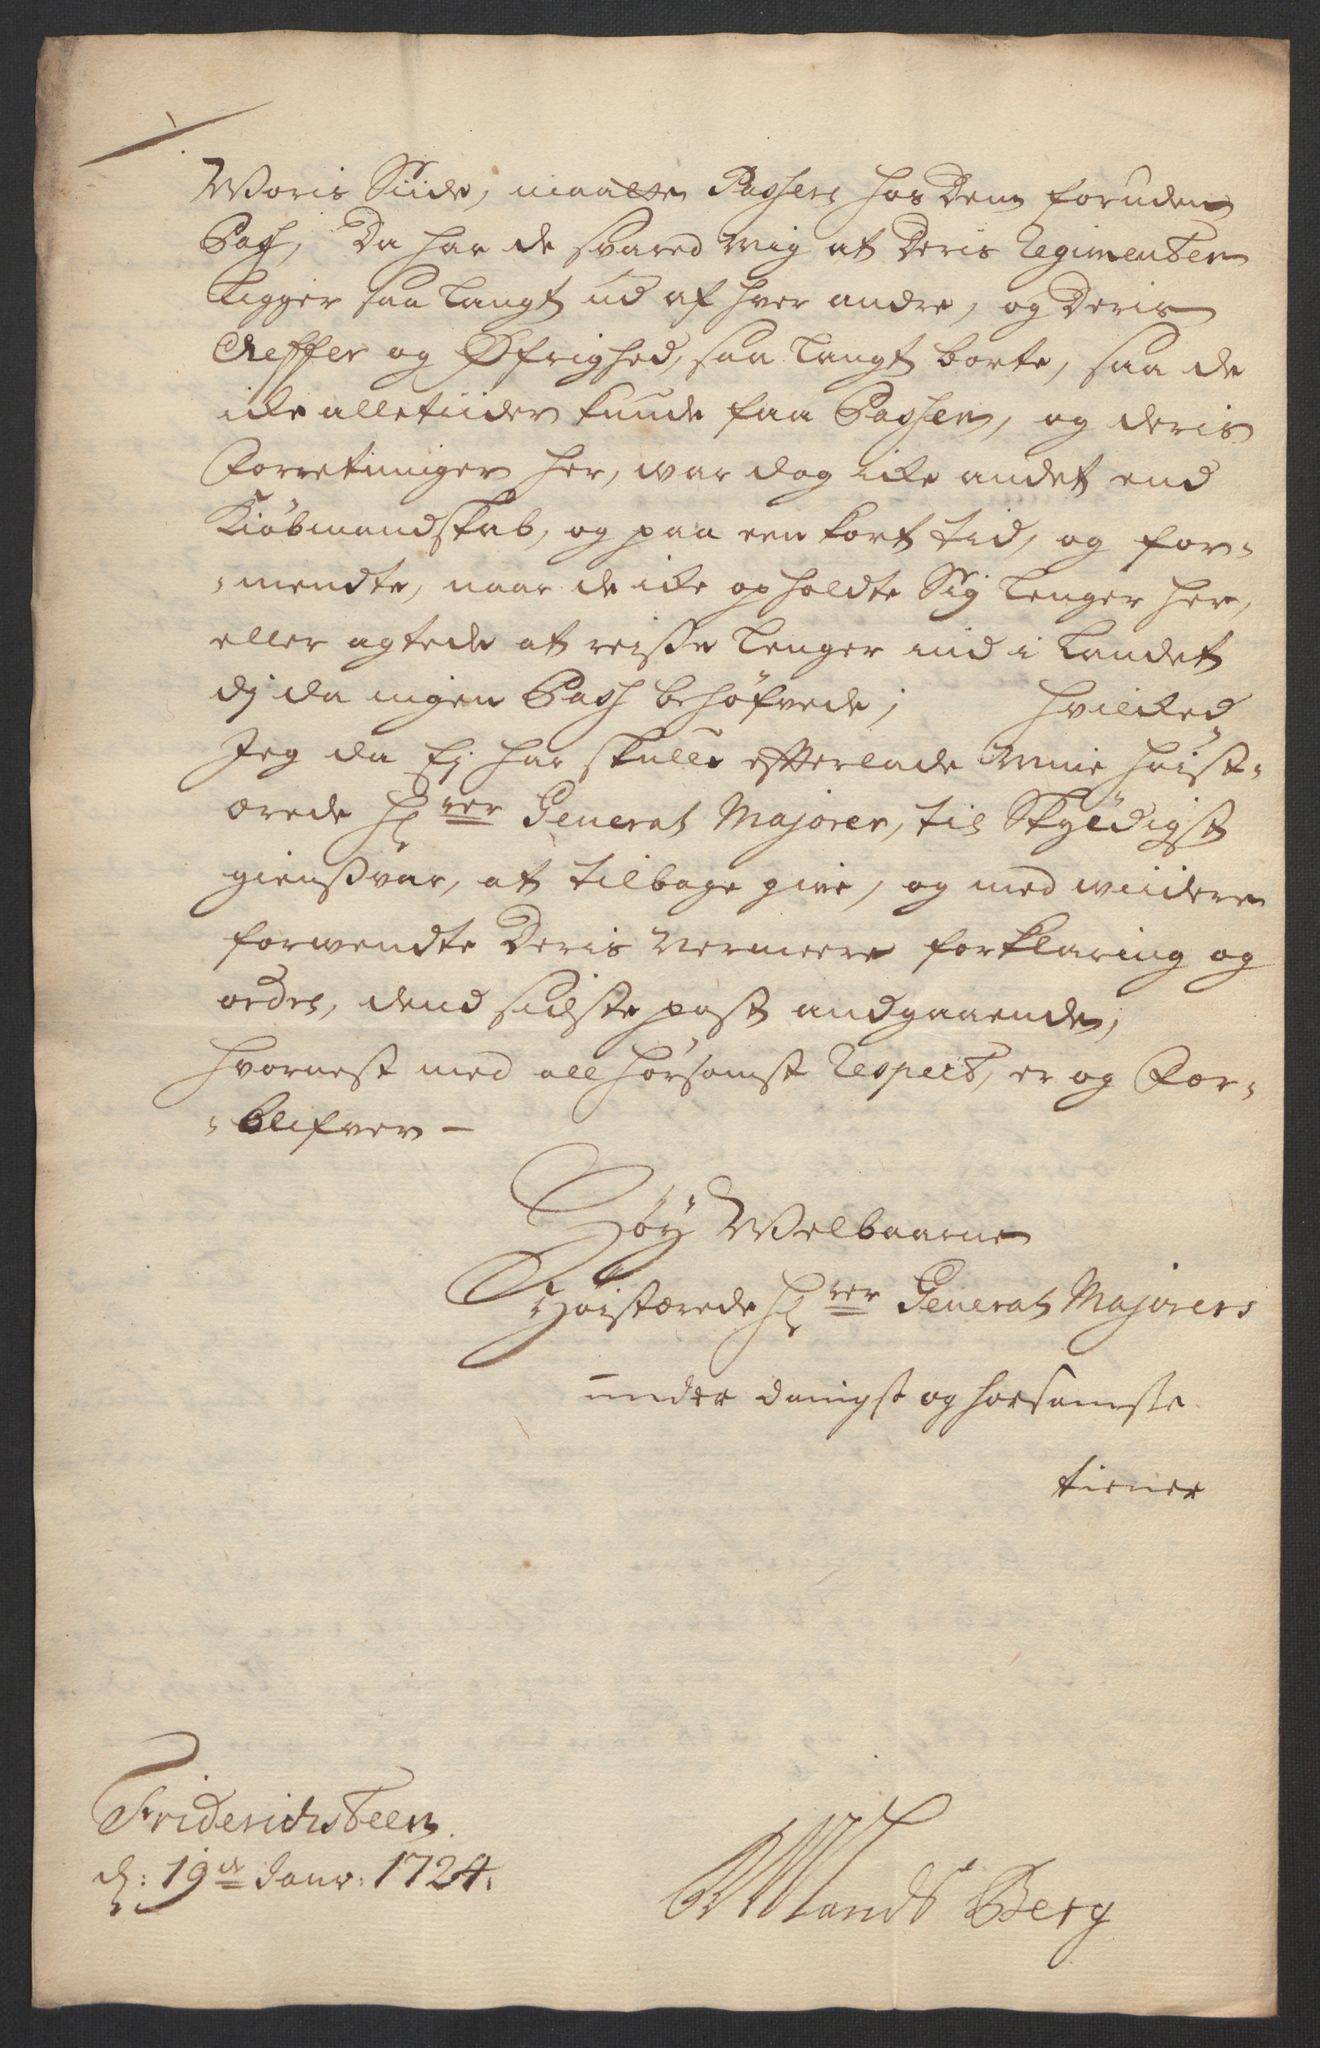 Woris Siide, maatte Passere hos Dem foruden
Pass, Da har de svared mig at Deris Regimenter
ligger saa langt ud af hver andre, og Deris
Cheffer og Øfrighed, saa langt borte, saa de
icke alletiider kunde faa Passer, og deris
Forretninger her, war dog icke andet end
Kiøbmandskab, og paa een kort tid, og for-
-mendte, naar de icke opholdte Sig lenger her,
eller agtede at reisse lenger ind i Landet
dj da ingen Pass behøfvede; hvilcked
Jeg da Ej har skulle efterlade Mine høist-
ærede H.rer General Majorer, til Skyldigst
giensvar, at tilbage give, og med wiidere
forwendte Deris nermeere forklaring og
ordre, dend sidste post andgaaende,
hvornest med all hørsomst Respect, er og For-
-blifver -
Høy Welbaarne
Høistærede H.rer General Majorers
under danigst og horsamste
tiener
Friderichsteen
d: 19de Janv: 1724.
Landsberg